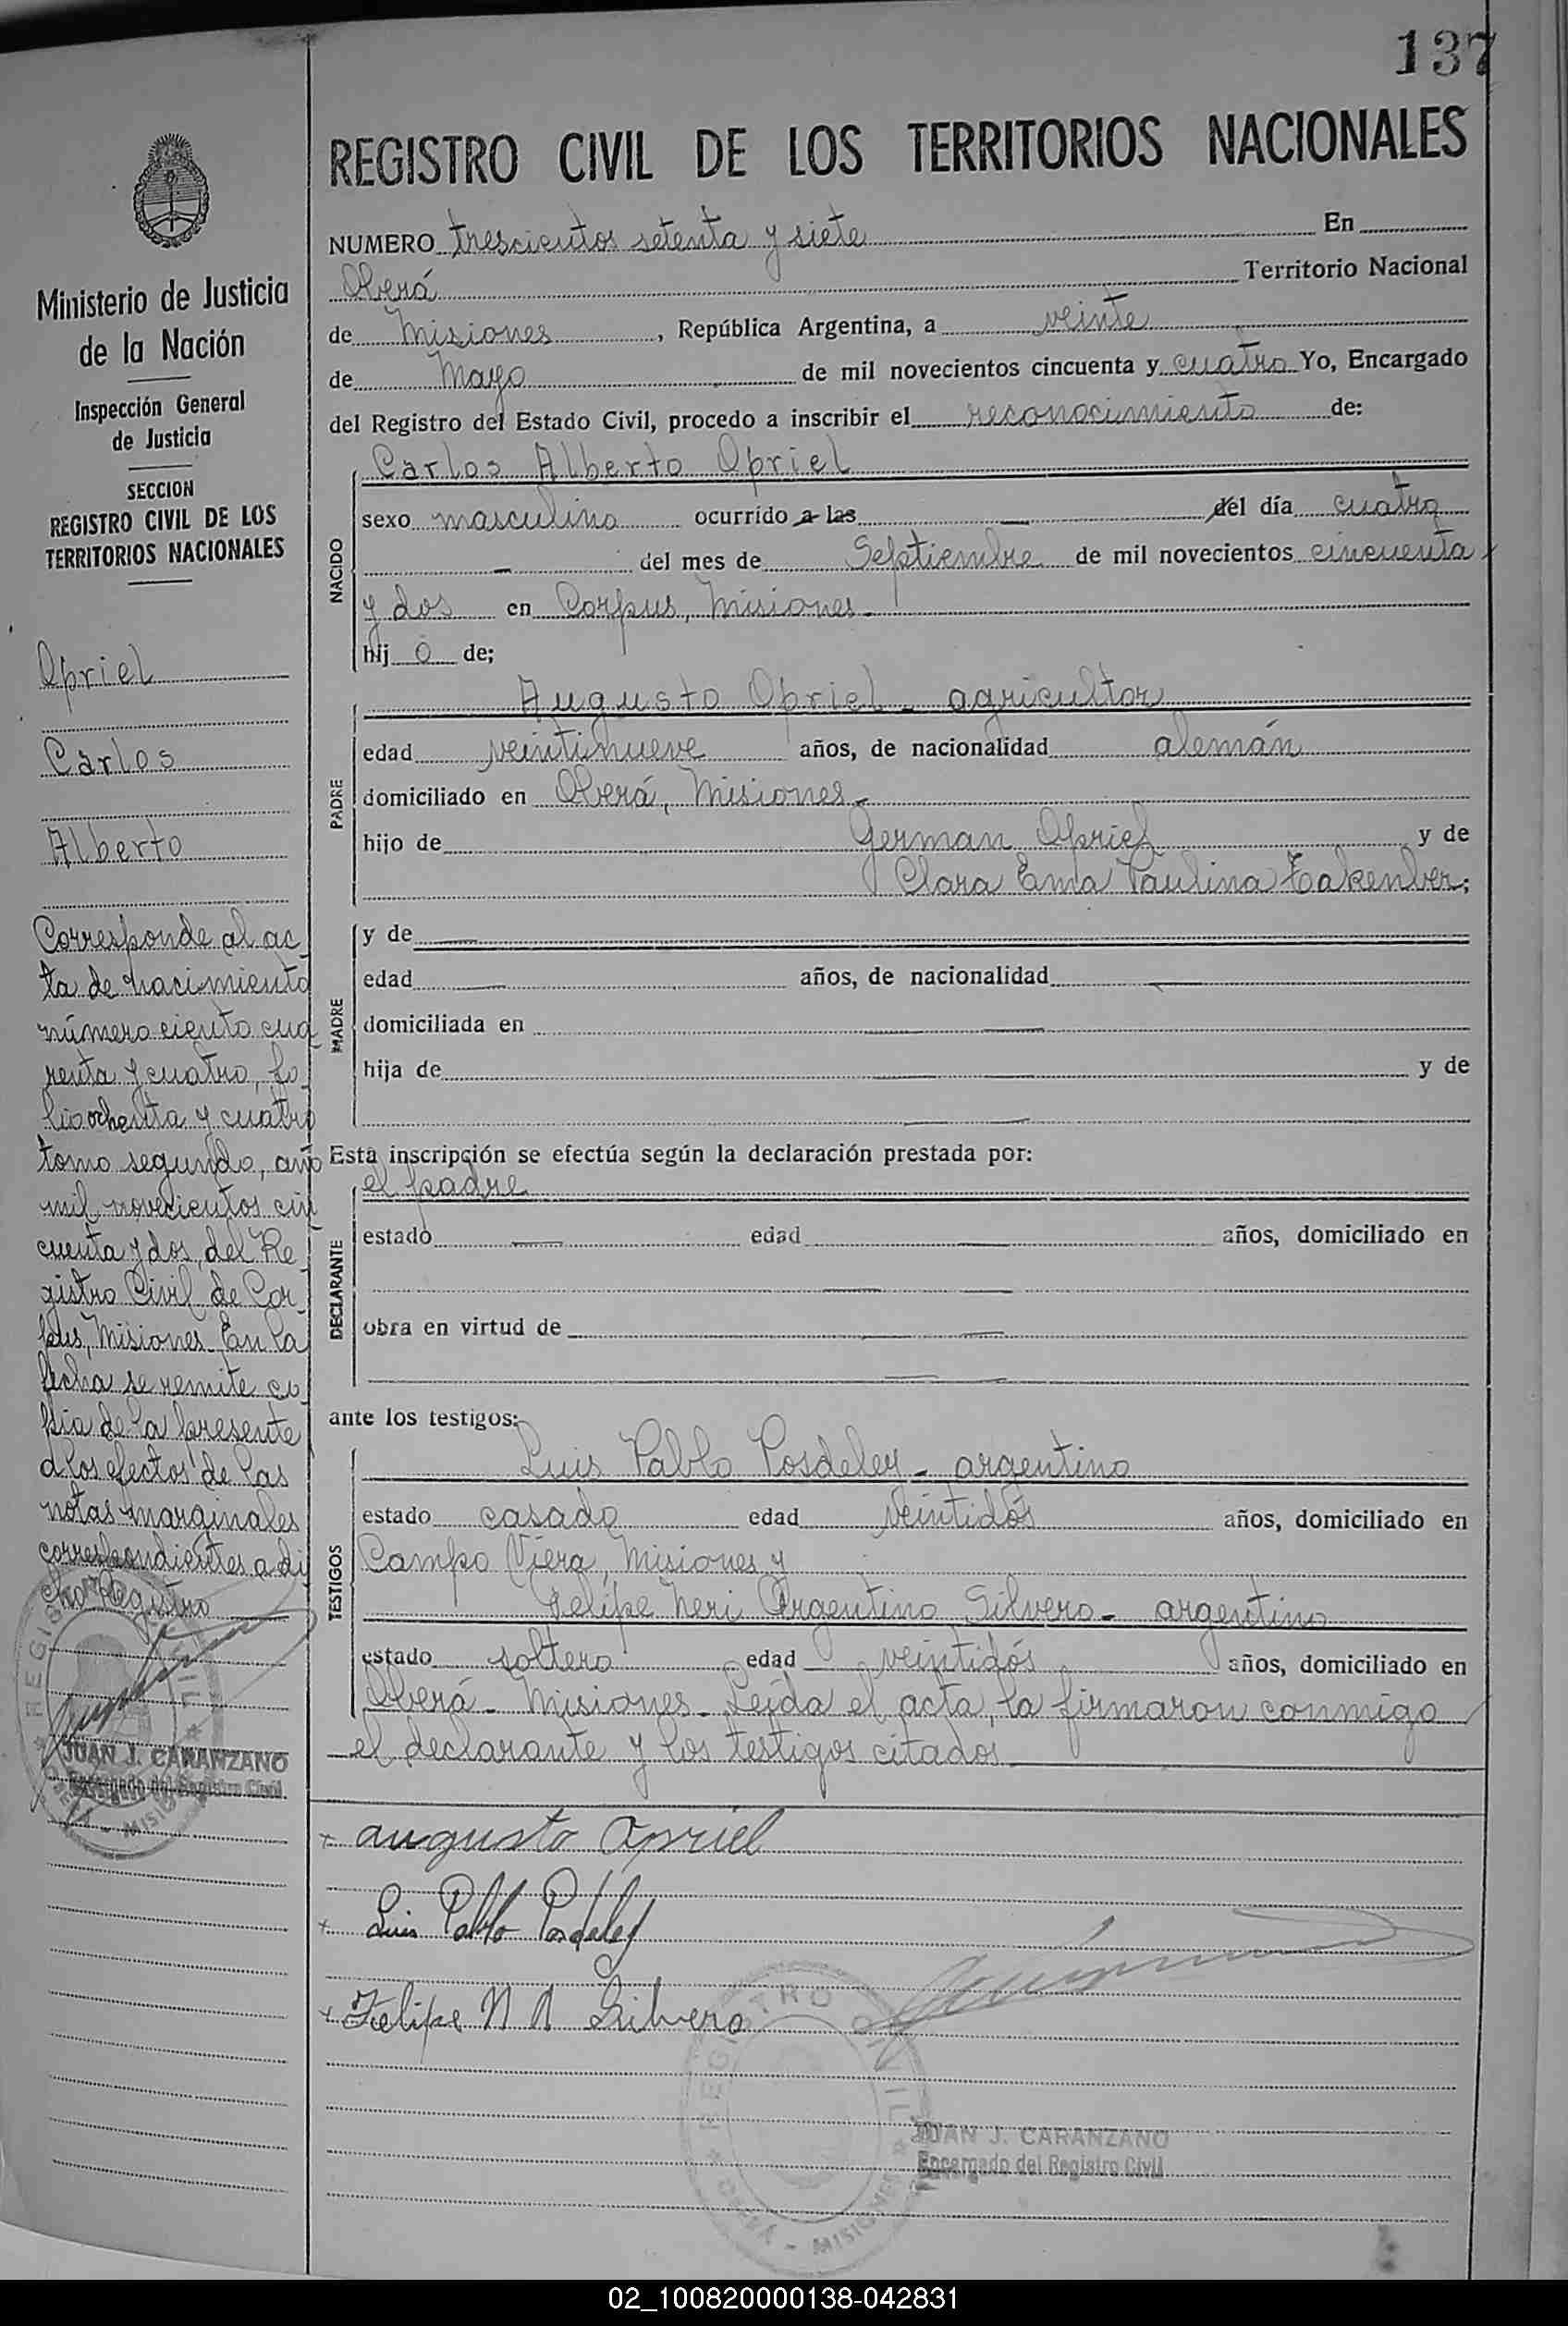 137
REGISTRO CIVIL DE LOS TERRITORIOS NACIONALES
Ministerio de Justicia
de la Nación
Inspección General
de Justicia
SECCION
REGISTRO CIVIL DE LOS
TERRITORIOS NACIONALES
Opriel
Carlos
Alberto
Corresponde al ac
ta de nacimiento
número ciento cua
renta y cuatro, fo
lio ochenta y cuatro
tomo segundo, año
mil novecientos cin
cuenta y dos, del Re
gistro Civil de Cor
pus, Misiones. En la
fecha se remite co
pia de la presente
a los efectos de las
notas marginales
correspondientes a di
cho Registro
JUAN J. CARANZANO
Encargado del Registro Civil
NUMERO trescientos setenta y siete En
Oberá Territorio Nacional
de Misiones, República Argentina, a veinte
de Mayo de mil novecientos cincuenta y cuatro Yo, Encargado
del Registro del Estado Civil, procedo a inscribir el reconocimiento de:
NACIDO
Carlos Alberto Opriel
sexo masculino ocurrido a las — del día cuatro
— del mes de Septiembre de mil novecientos cincuenta
y dos en Corpus, Misiones.
hij o de;
PADRE
Augusto Opriel - agricultor
edad veintinueve años, de nacionalidad alemán
domiciliado en Oberá, Misiones.
hijo de German Opriel y de
Clara Ema Paulina ;
MADRE
y de —
edad — años, de nacionalidad —
domiciliada en —
hija de — y de
—
Esta inscripción se efectúa según la declaración prestada por:
DECLARANTE
el padre
estado — edad — años, domiciliado en
—
obra en virtud de —
—
ante los testigos:
TESTIGOS
Luis Pablo Posdeley - argentino
estado casado edad veintidós años, domiciliado en
Campo Viera, Misiones y
Felipe Neri Argentino Silvero - argentino
estado soltero edad veintidós años, domiciliado en
Oberá - Misiones - Leída el acta, la firmaron conmigo
el declarante y los testigos citados
+ augusto opriel
+ Luis Pablo Posdeley
+ Felipe N A Silvero
REGISTRO CIVIL
OBERÁ - MISIONES
JUAN J. CARANZANO
Encargado del Registro Civil
02_100820000138-042831